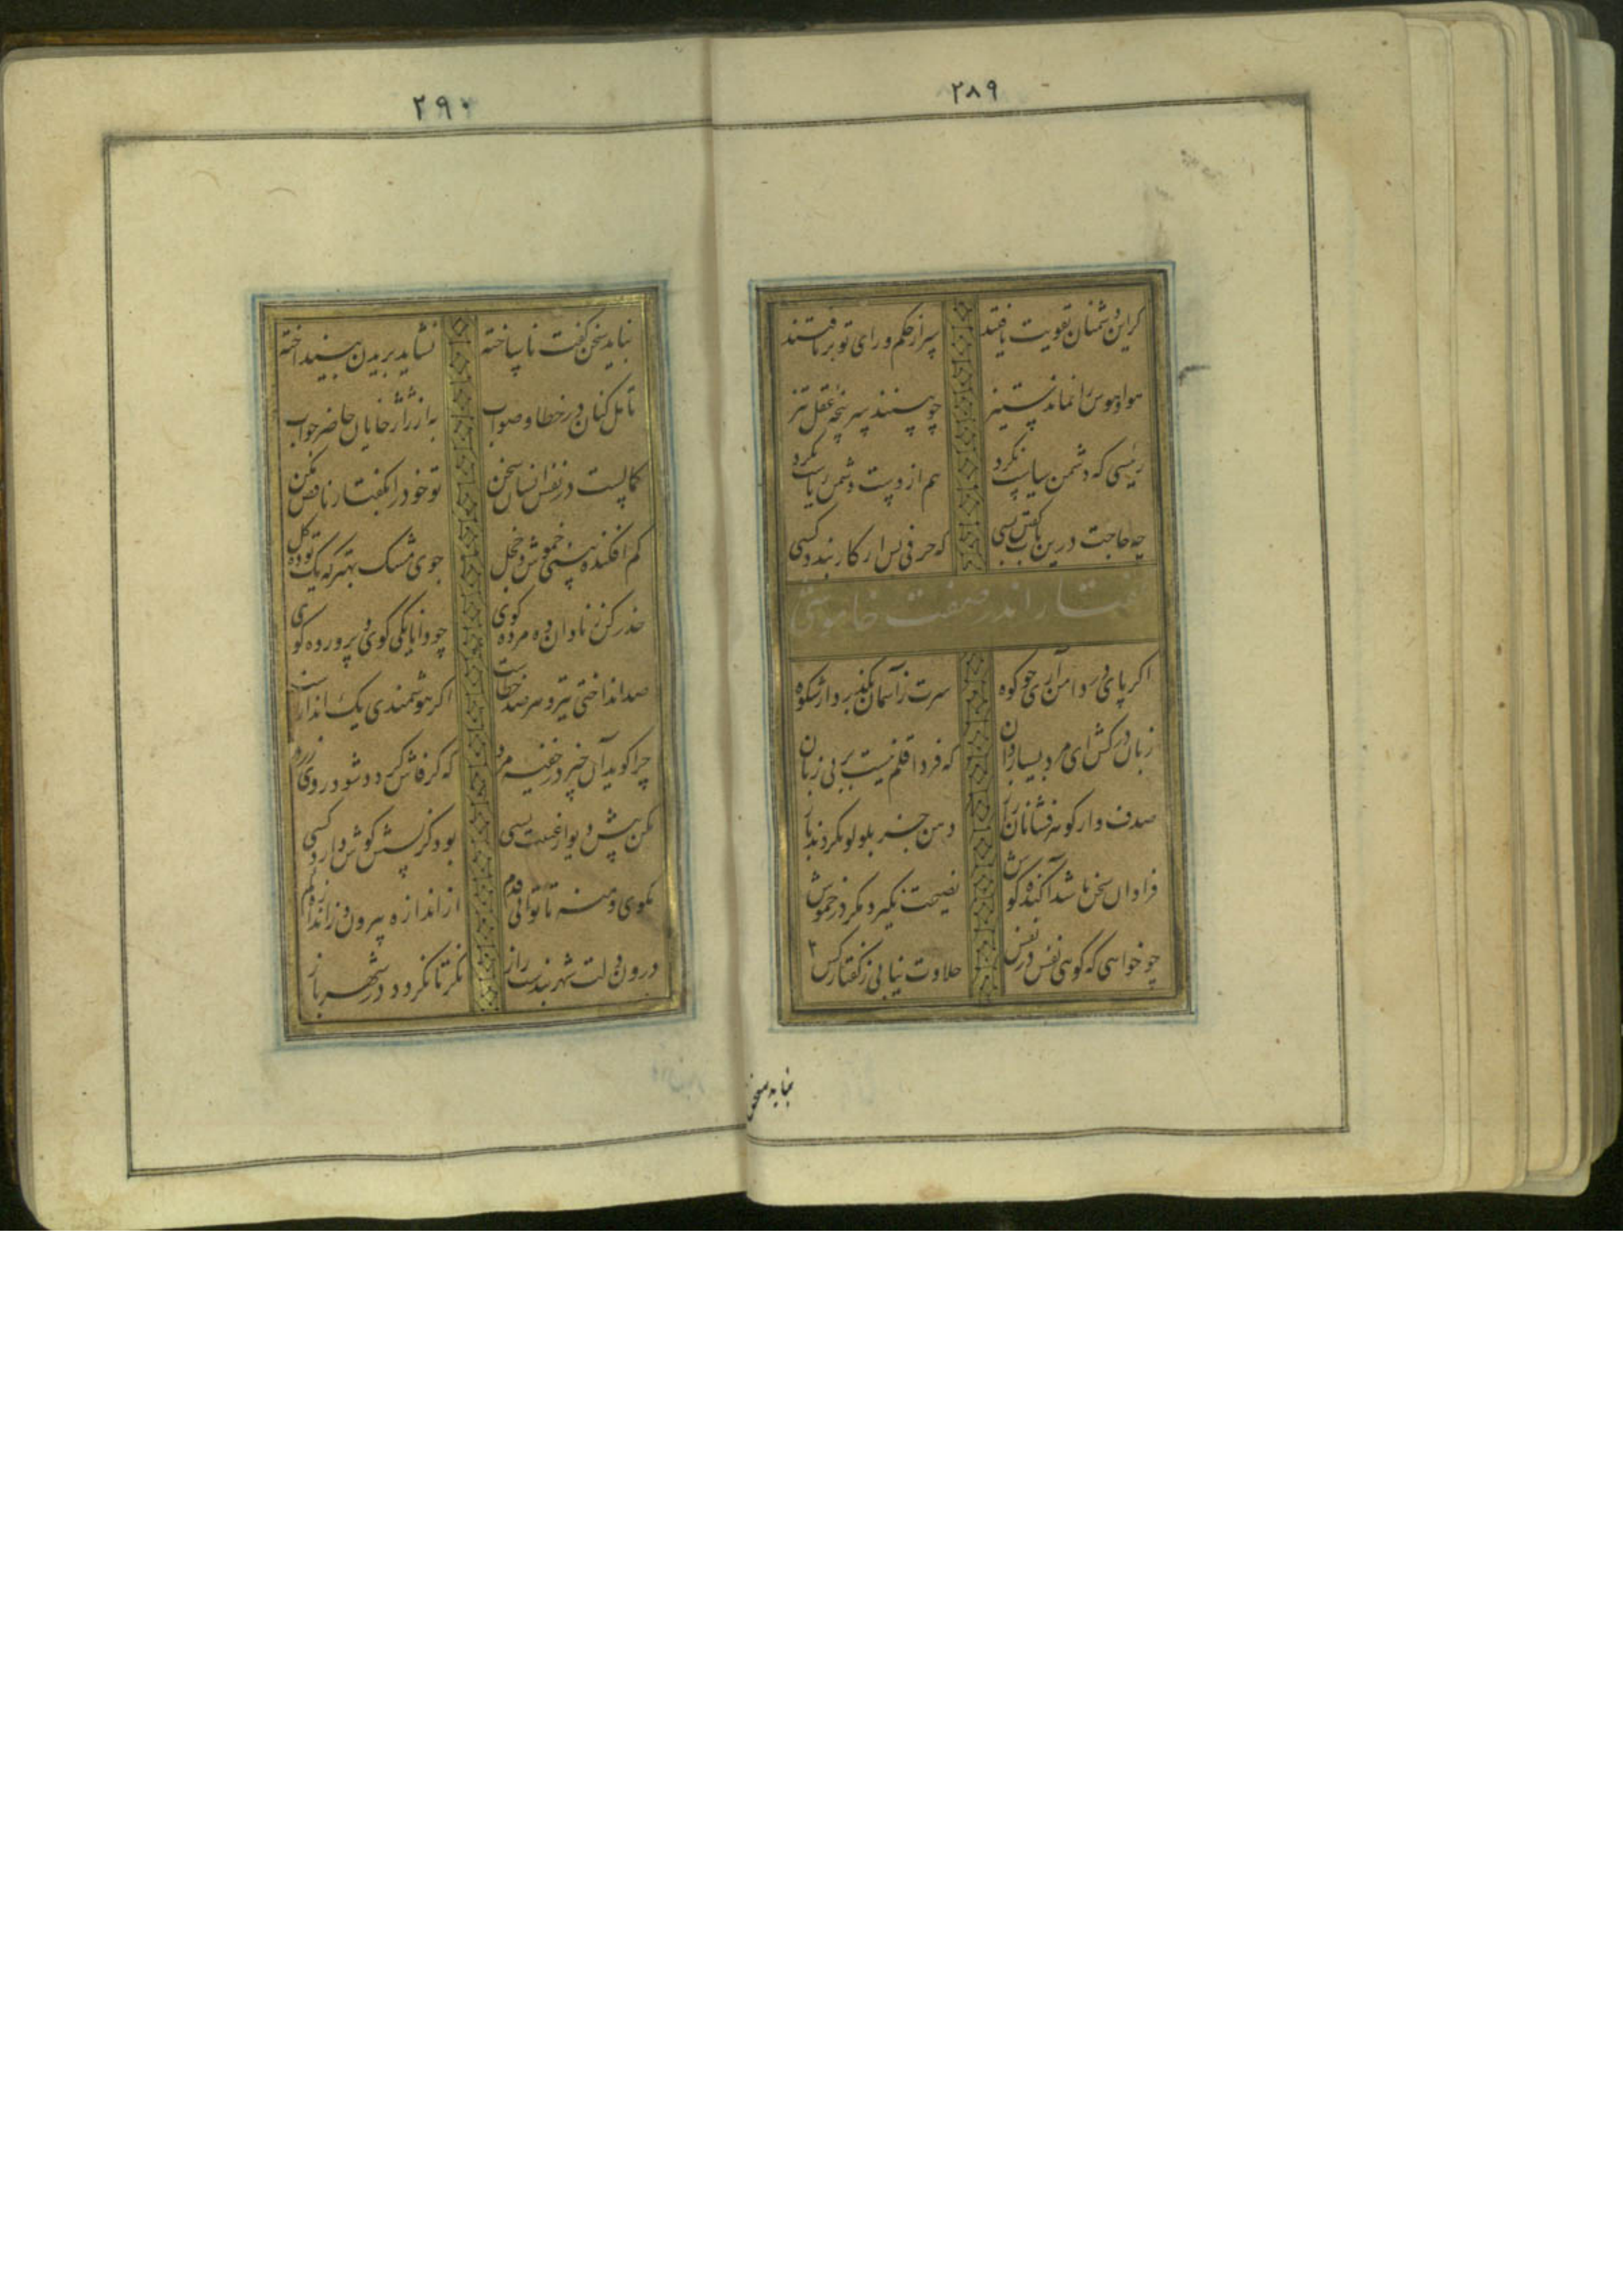 ۲۸۹
گر این دشمنان تقویت یافتند سر از حکم و رای تو برتافتند
هوا و هوس را نماند ستیز چو بینند سرپنجه عقل تیز
رئیسی که دشمن سیاست نکرد هم از دست دشمن ریاست نکرد
چه حاجت درین باب گفتن بسی که حرفی بس ار کار بندد کسی
گفتار اندر صفت خاموشی
اگر پای در دامن آری چو کوه سرت ز آسمان بگذرد از شکوه
زبان درکش ای مرد بسیاردان که فردا قلم نیست بر بی زبان
صدف وار گوهرفشانان راز دهن جز بلولو نکردند باز
فراوان سخن باشد آکنده گوش نصیحت نگیرد مگر در خموش
چو خواهی که گوئی نفس در نفس حلاوت نیابی ز گفتار کس
نباید سخن
۲۹۰
نباید سخن گفت ناساخته نشاید بریدن نینداخته
تامل کنان در خطا و صواب به از ژاژخایان حاضر جواب
کمالست در نفس انسان سخن تو خود را بگفتار ناقص مکن
کم افکنده بینی خموش و خجل جوی مشک بهتر که یک توده گل
حذر کن ز نادان ده مرده گوی چو دانا یکی گوی و پرورده گوی
صد انداختی تیر و هر صد خطاست اگر هوشمندی یک انداز راست
چرا گوید آن چیز در خفیه مرد که گر فاش گردد شود روی زرد
مکن پیش دیوار غیبت بسی بود کز پسش گوش دارد کسی
مگوی و منه تا توانی قدم از اندازه بیرون و ز اندازه کم
درون دلت شهربندست راز نگر تا نگردد در شهر باز